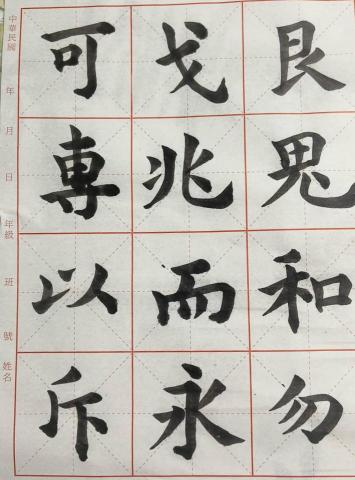 艮和勿
戈兆而永
可専以斥
中華民國 年 月 日 年級 班 號 姓名